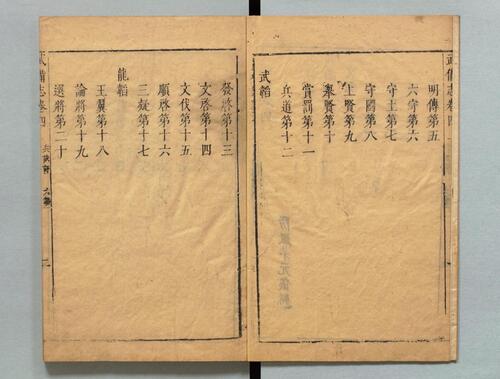 武備志卷四
明傳第五
六守第六
守土第七
守國第八
上賢第九
舉賢第十
賞罰第十一
兵道第十二
武韜
發啓第十三
文啓第十四
文伐第十五
順啓第十六
三疑第十七
龍韜
王翼第十八
論將第十九
選將第二十
武備志卷四
兵訣評